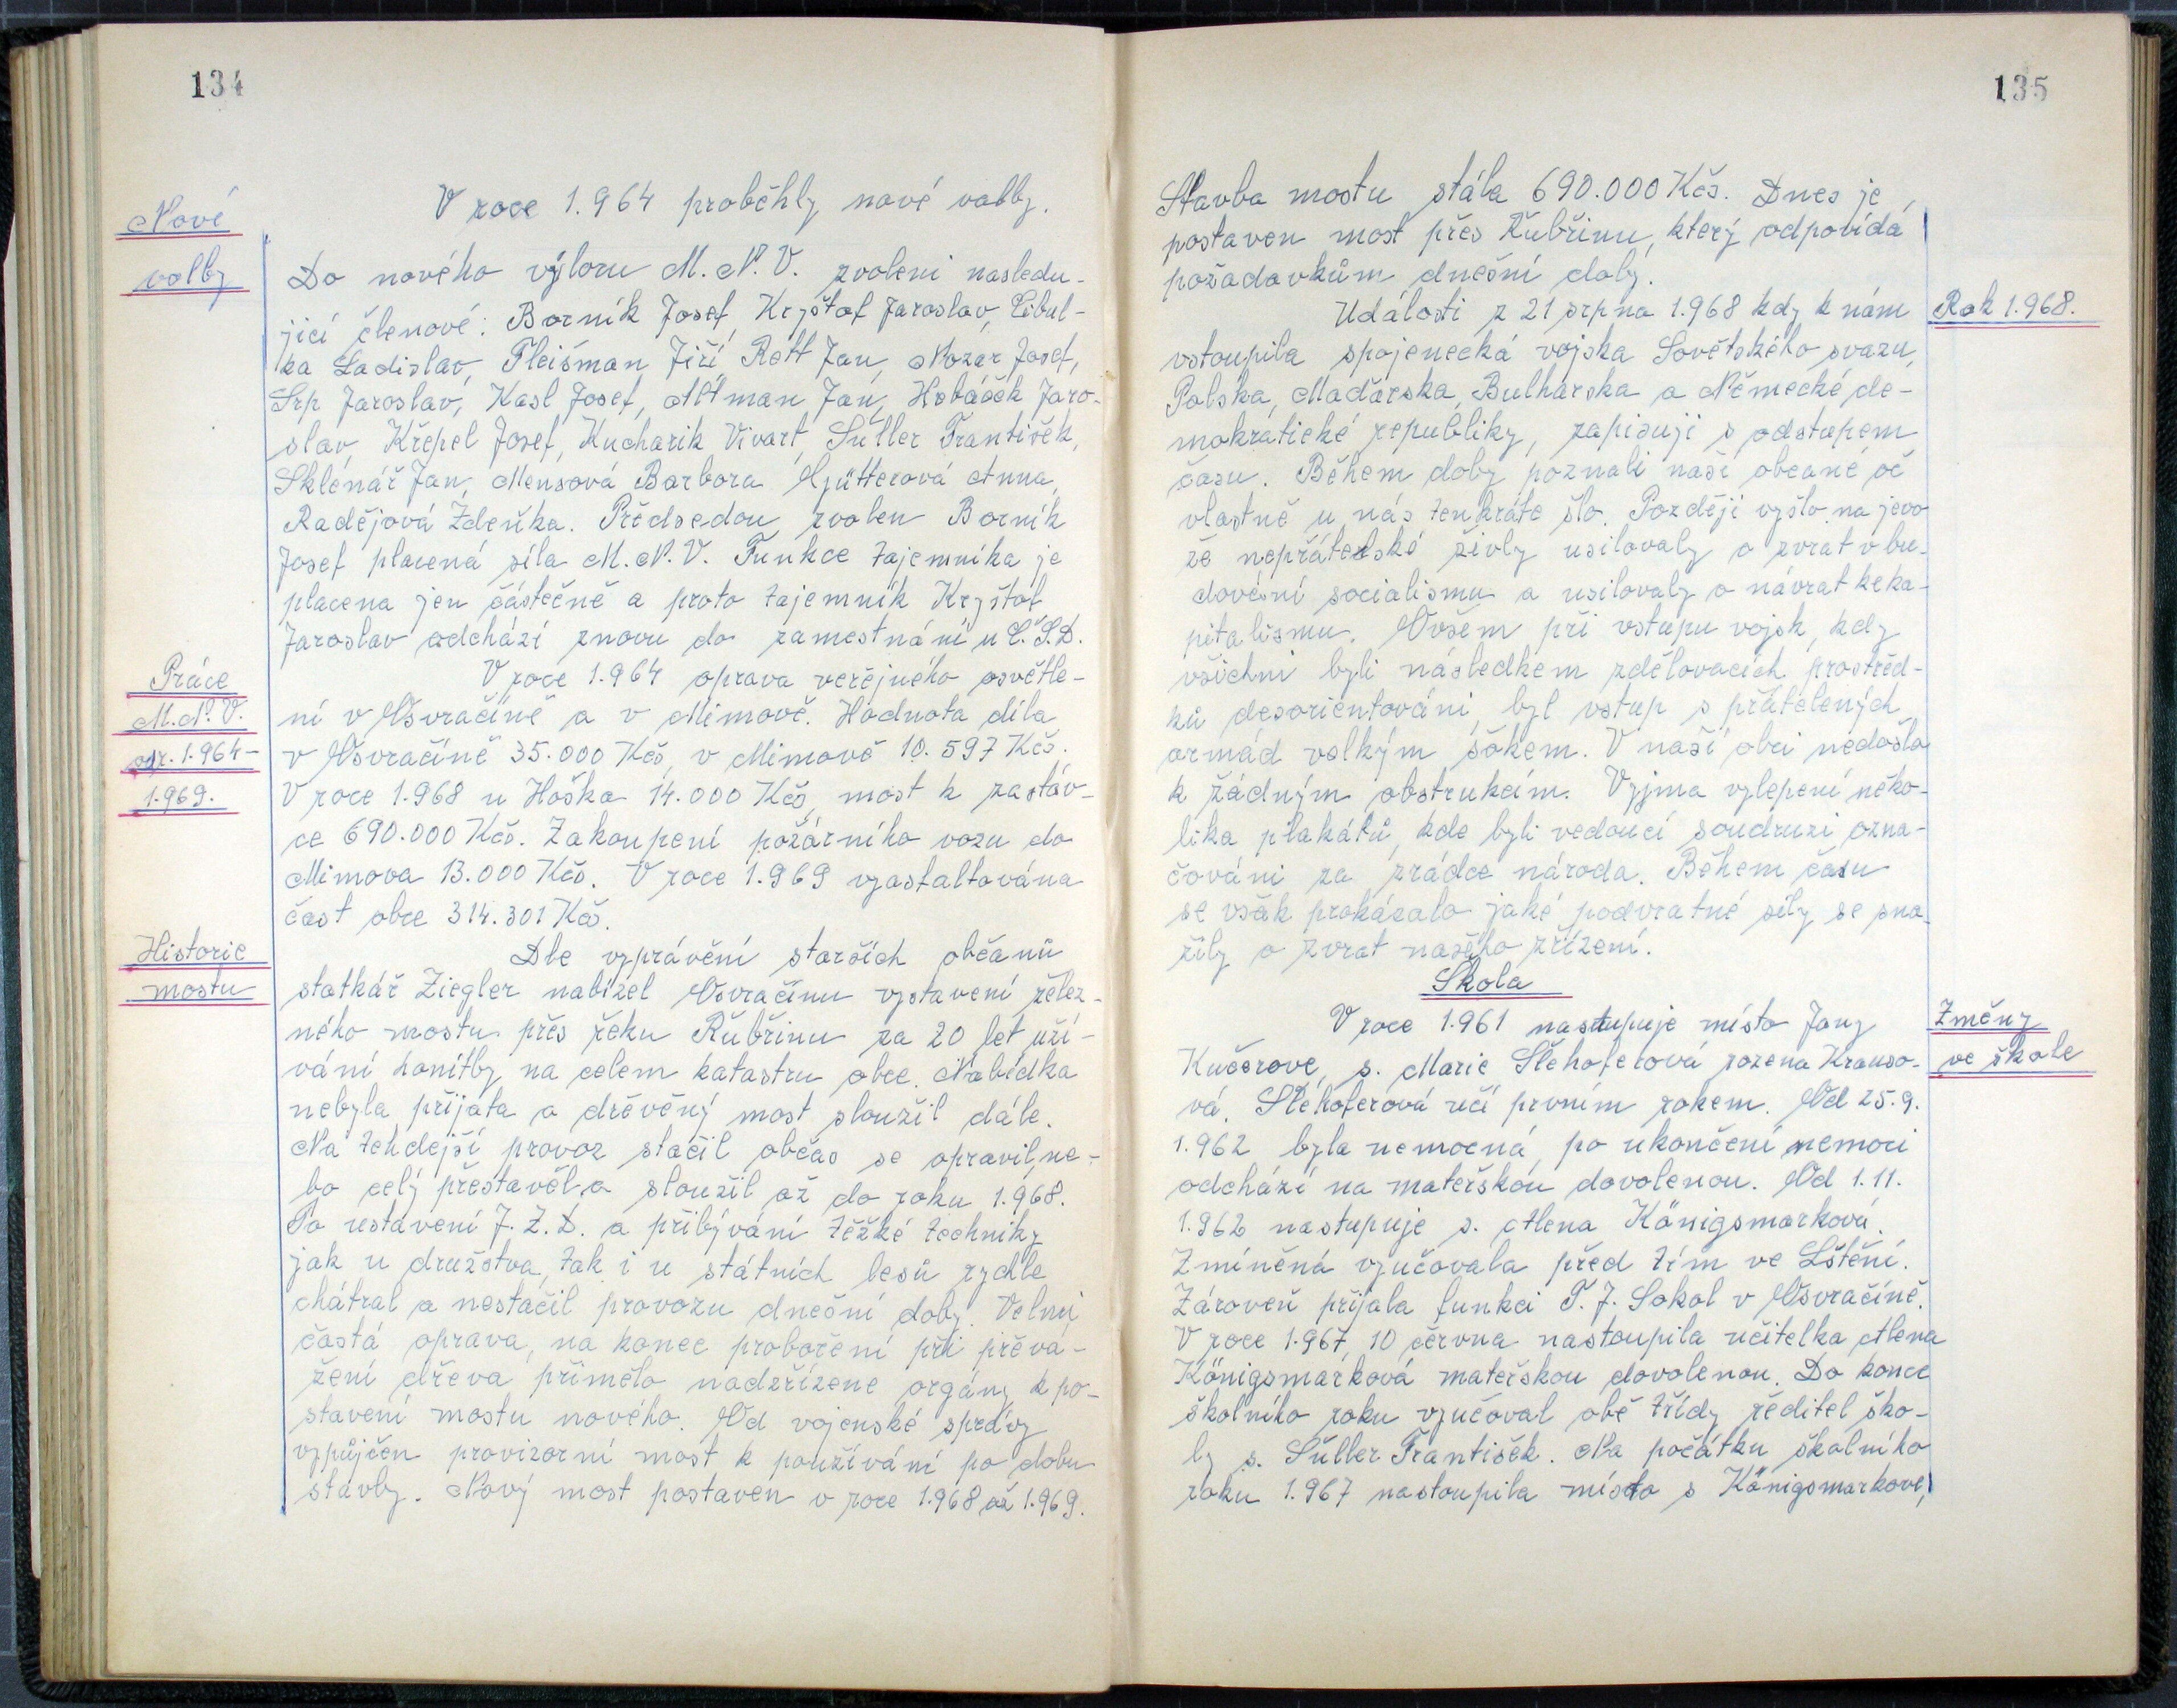 134
Nové
volby
V roce 1.964 proběhly nové volby.
Do nového výboru M. N. V. zvoleni nasledu-
jicí členové: Borník Josef, Kryštof Jaroslav, Cibul-
ka Ladislav, Fleišman Jiří, Rott Jan, Nozar Josef,
Srp Jaroslav, Kasl Josef, Altman Jan, Hobáček Jaro-
slav, Křepel Josef, Kucharik Vivart, Šuller František,
Sklenář Jan, Mensová Barbora, Gütterová Anna,
Radějová Zdeňka. Předsedou zvolen Borník
Josef placená síla M. N. V. Funkce tajemníka je
placena jen částečně a proto tajemník Kryštof
Jaroslav odchází znovu do zamestnání u Č.S.D.
Práce
M.N.V.
od r. 1.964-
1.969.
V roce 1.964 oprava veřejného osvětle-
ní v Osvračíně a v Mimově. Hodnota díla
v Osvračíně 35.000 Kčs, v Mimově 10.597 Kčs.
V roce 1.968 u Hoška 14.000 Kčs, most k zastáv-
ce 690.000 Kčs. Zakoupení požárního vozu do
Mimova 13.000 Kčs. V roce 1.969 vyasfaltována
čast obce 314.301 Kčs.
Historie
mostu
Dle vyprávění starších občanů
statkář Ziegler nabízel Osvračínu vystavení želez-
ného mostu přes řeku Řubřinu za 20 let uží-
vání honitby na celem katastru obce. Nabídka
nebyla přijata a dřevěný most sloužil dále.
Na tehdejší provoz stačil občas se opravil, ne-
bo celý přestavěl a sloužil až do roku 1.968.
Po ustavení J. Z. D. a přibývání těžké techniky
jak u družstva, tak i u státních lesů rychle
chátral a nestačil provozu dnešní doby. Velmi
častá oprava, na konec proboření při převá-
žení dřeva přimělo nadzřízené orgány k po-
stavení mostu nového. Od vojenské správy
vypůjčen provizorní most k používání po dobu
stavby. Nový most postaven v roce 1.968 až 1.969.
135
Stavba mostu stála 690.000 Kčs. Dnes je
postaven most přes Řubřinu, který odpovídá
požadavkům dnešní doby.
Rok 1.968.
Události z 21 srpna 1.968 kdy k nám
vstoupila spojenecká vojska Sovětského svazu,
Polska, Maďarska, Bulharska a Německé de-
mokratické republiky, zapisuji s odstupem
času. Během doby poznali naši občané oč
vlastně u nás tenkráte šlo. Později vyšlo na jevo
že nepřátelské živly usilovaly o zvrat v bu-
dování socialismu a usilovaly o návrat ke ka-
pitalismu. Ovšem při vstupu vojsk, kdy
všichni byli následkem zdělovacích prostřed-
ků desorientováni, byl vstup spřátelených
armád velkým šokem. V naší obci nedošlo
k žádným obstrukcím. Vyjma vylepení něko-
lika plakátů, kde byli vedoucí soudruzi ozna-
čováni za zrádce národa. Během času
se však prokázalo jaké podvratné síly se sna-
žily o zvrat našeho zřízení.
Škola
Změny
ve škole
V roce 1.961 nastupuje místo Jany
Kučerove, s. Marie Štehoferová rozena Krauso-
vá. Štehoferová učí prvním rokem. Od 25.9.
1.962 byla nemocná, po ukončení nemoci
odchází na mateřskou dovolenou. Od 1.11.
1.962 nastupuje s. Alena Königsmarková.
Zmíněná vyučovala před tím ve Lštění.
Zároveň přijala funkci T. J. Sokol v Osvračíně.
V roce 1.967, 10 června nastoupila učitelka Alena
Königsmarková mateřskou dovolenou. Do konce
školního roku vyučoval obě třídy ředitel ško-
ly s. Šuller František. Na počátku školního
roku 1.967 nastoupila místo s Königsmarkove,